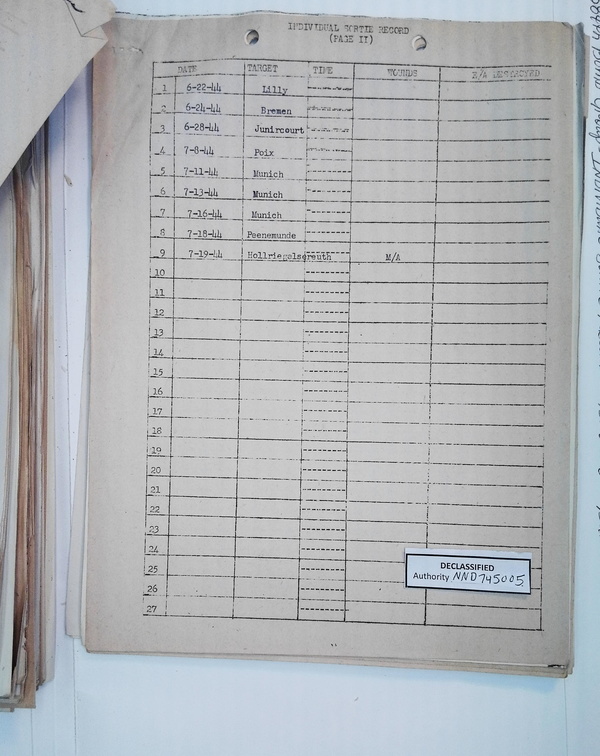 INDIVIDUAL SORTIE RECORD
(PAGE II)
DATE TARGET TIME WOUNDS E/A DESTROYED
1 6-22-44 Lilly
2 6-24-44 Bremen
3 6-28-44 Junircourt
4 7-8-44 Poix
5 7-11-44 Munich
6 7-13-44 Munich
7 7-16-44 Munich
8 7-18-44 Peenemunde
9 7-19-44 Hollriegelsgreuth M/A
10
11
12
13
14
15
16
17
18
19
20
21
22
23
24
25
26
27
DECLASSIFIED
Authority NND745005